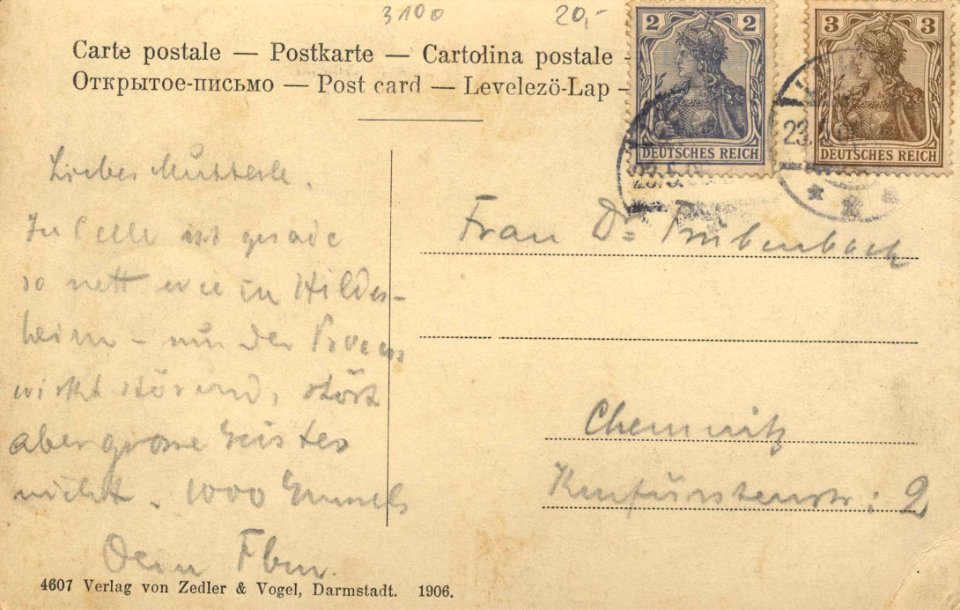 3100 20,-
Carte postale — Postkarte — Cartolina postale —
Открытое-письмо — Post card — Levelező-Lap —
2 2
DEUTSCHES REICH
3 3
DEUTSCHES REICH
Liebes Mutterle.
In Celle ist gerade
so nett wie in Hildes-
heim – nur der
wirkt störend, stört
aber grosse Geister
nicht. 1000
Dein
Frau Dr
Chemnitz
Kurfürstenstr: 2
4607 Verlag von Zedler & Vogel, Darmstadt. 1906.